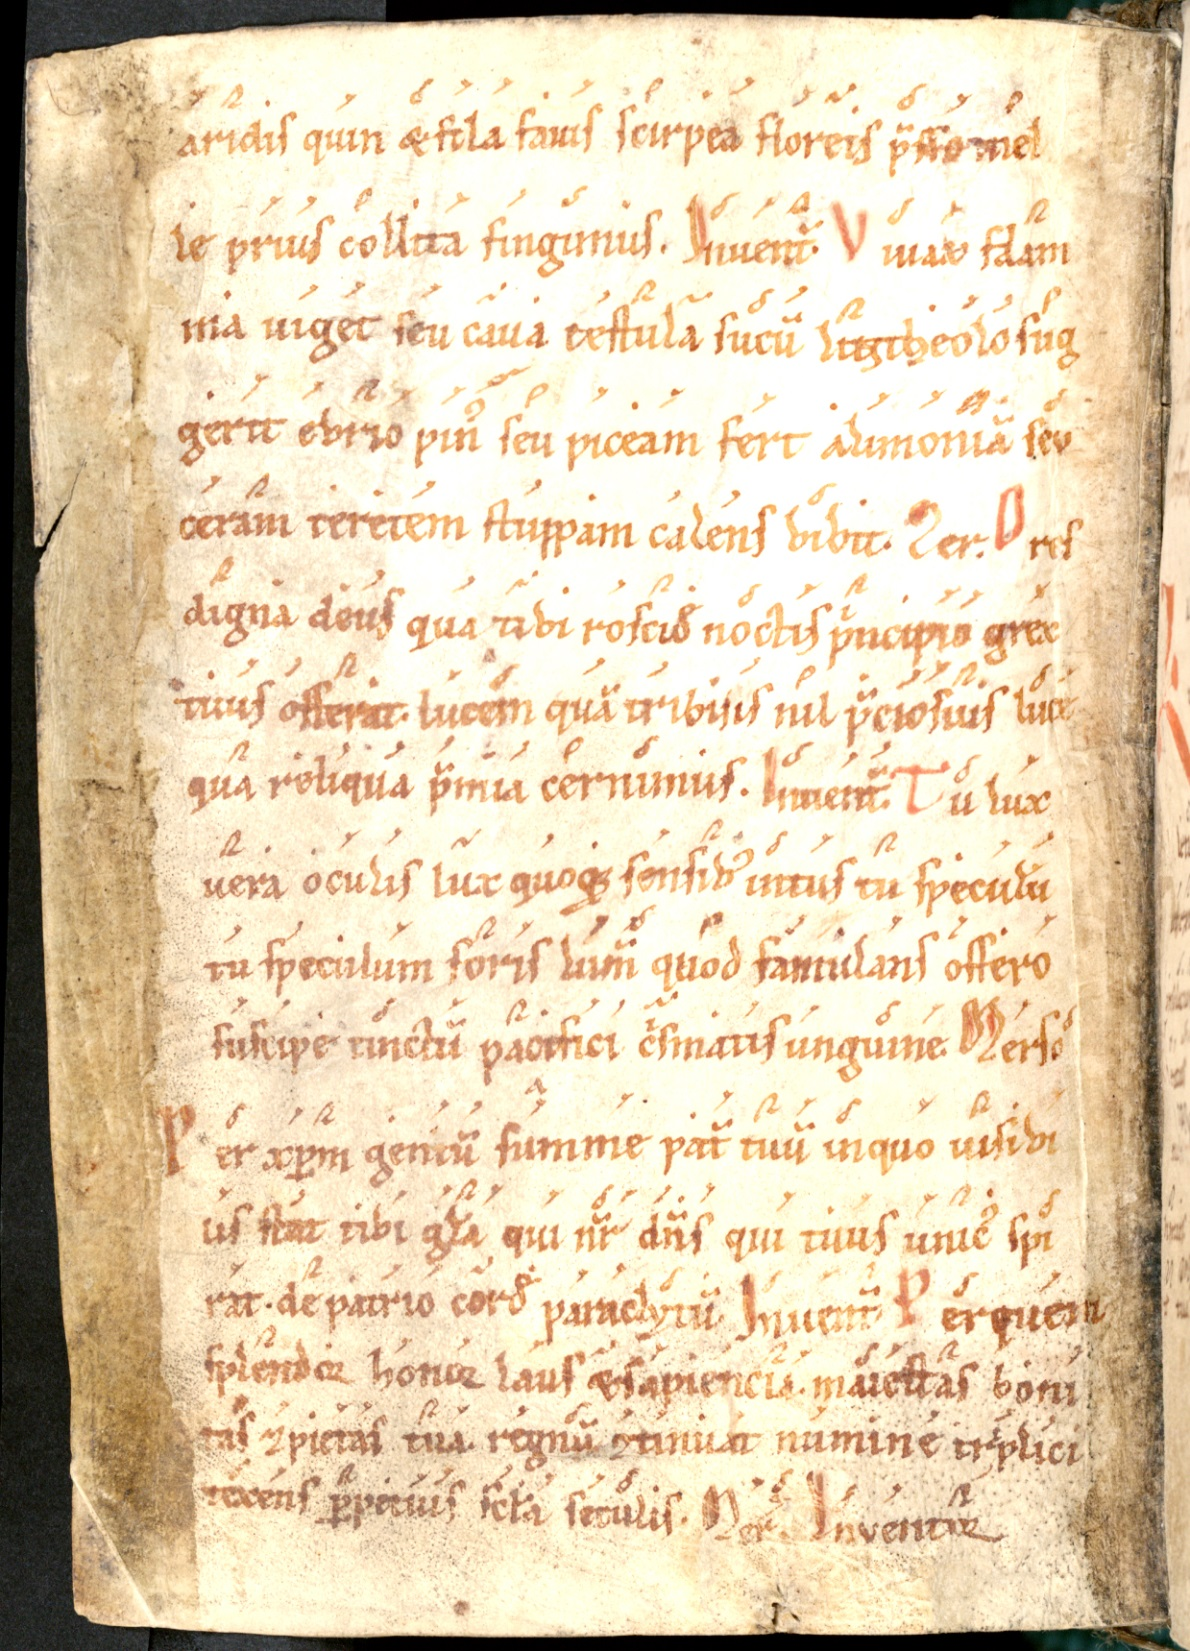 aridis quin & fila fauis scirpea floreis p̄sso mel
le prius collita fingimus. Inuent̄. V iuax flam
ma uiget seu caua testula sucū lignheolo sug
gerit ebrio pin᷒ seu piceam fert alimoniā seu
ceram teretem stuppam calens bibit. Ner. O res
digna deus qua tibi roscid᷒ noctis p̄ncipio grex
tuus offerat. lucem quā tribuis nil p̄ciosius luce
qua reliqua p̄mia cernimus. Inuent̄. Tu lux
uera oculis lux quoq; sensib᷒ intus tu speculū
tu speculum foris lum̄ quod famulans offero
suscipe tinctū pacifici c̄smatis unguine. Nerso
Per xp̄m genitū summe pat̄ tuū inquo uisibi
lis stat tibi gl̄a qui nr̄ dn̄s qui tuus unic᷒ spi
rat. de patrio cord᷒ paraclytū. Inuent̄ Per quem
splendor honor laus & sapiencia. maiestas boni
tas ⁊ pietas tua. regnū ꝯtinuat numine triplici
texens ꝑpetuis scl̄a seculis. Ner. Inventor